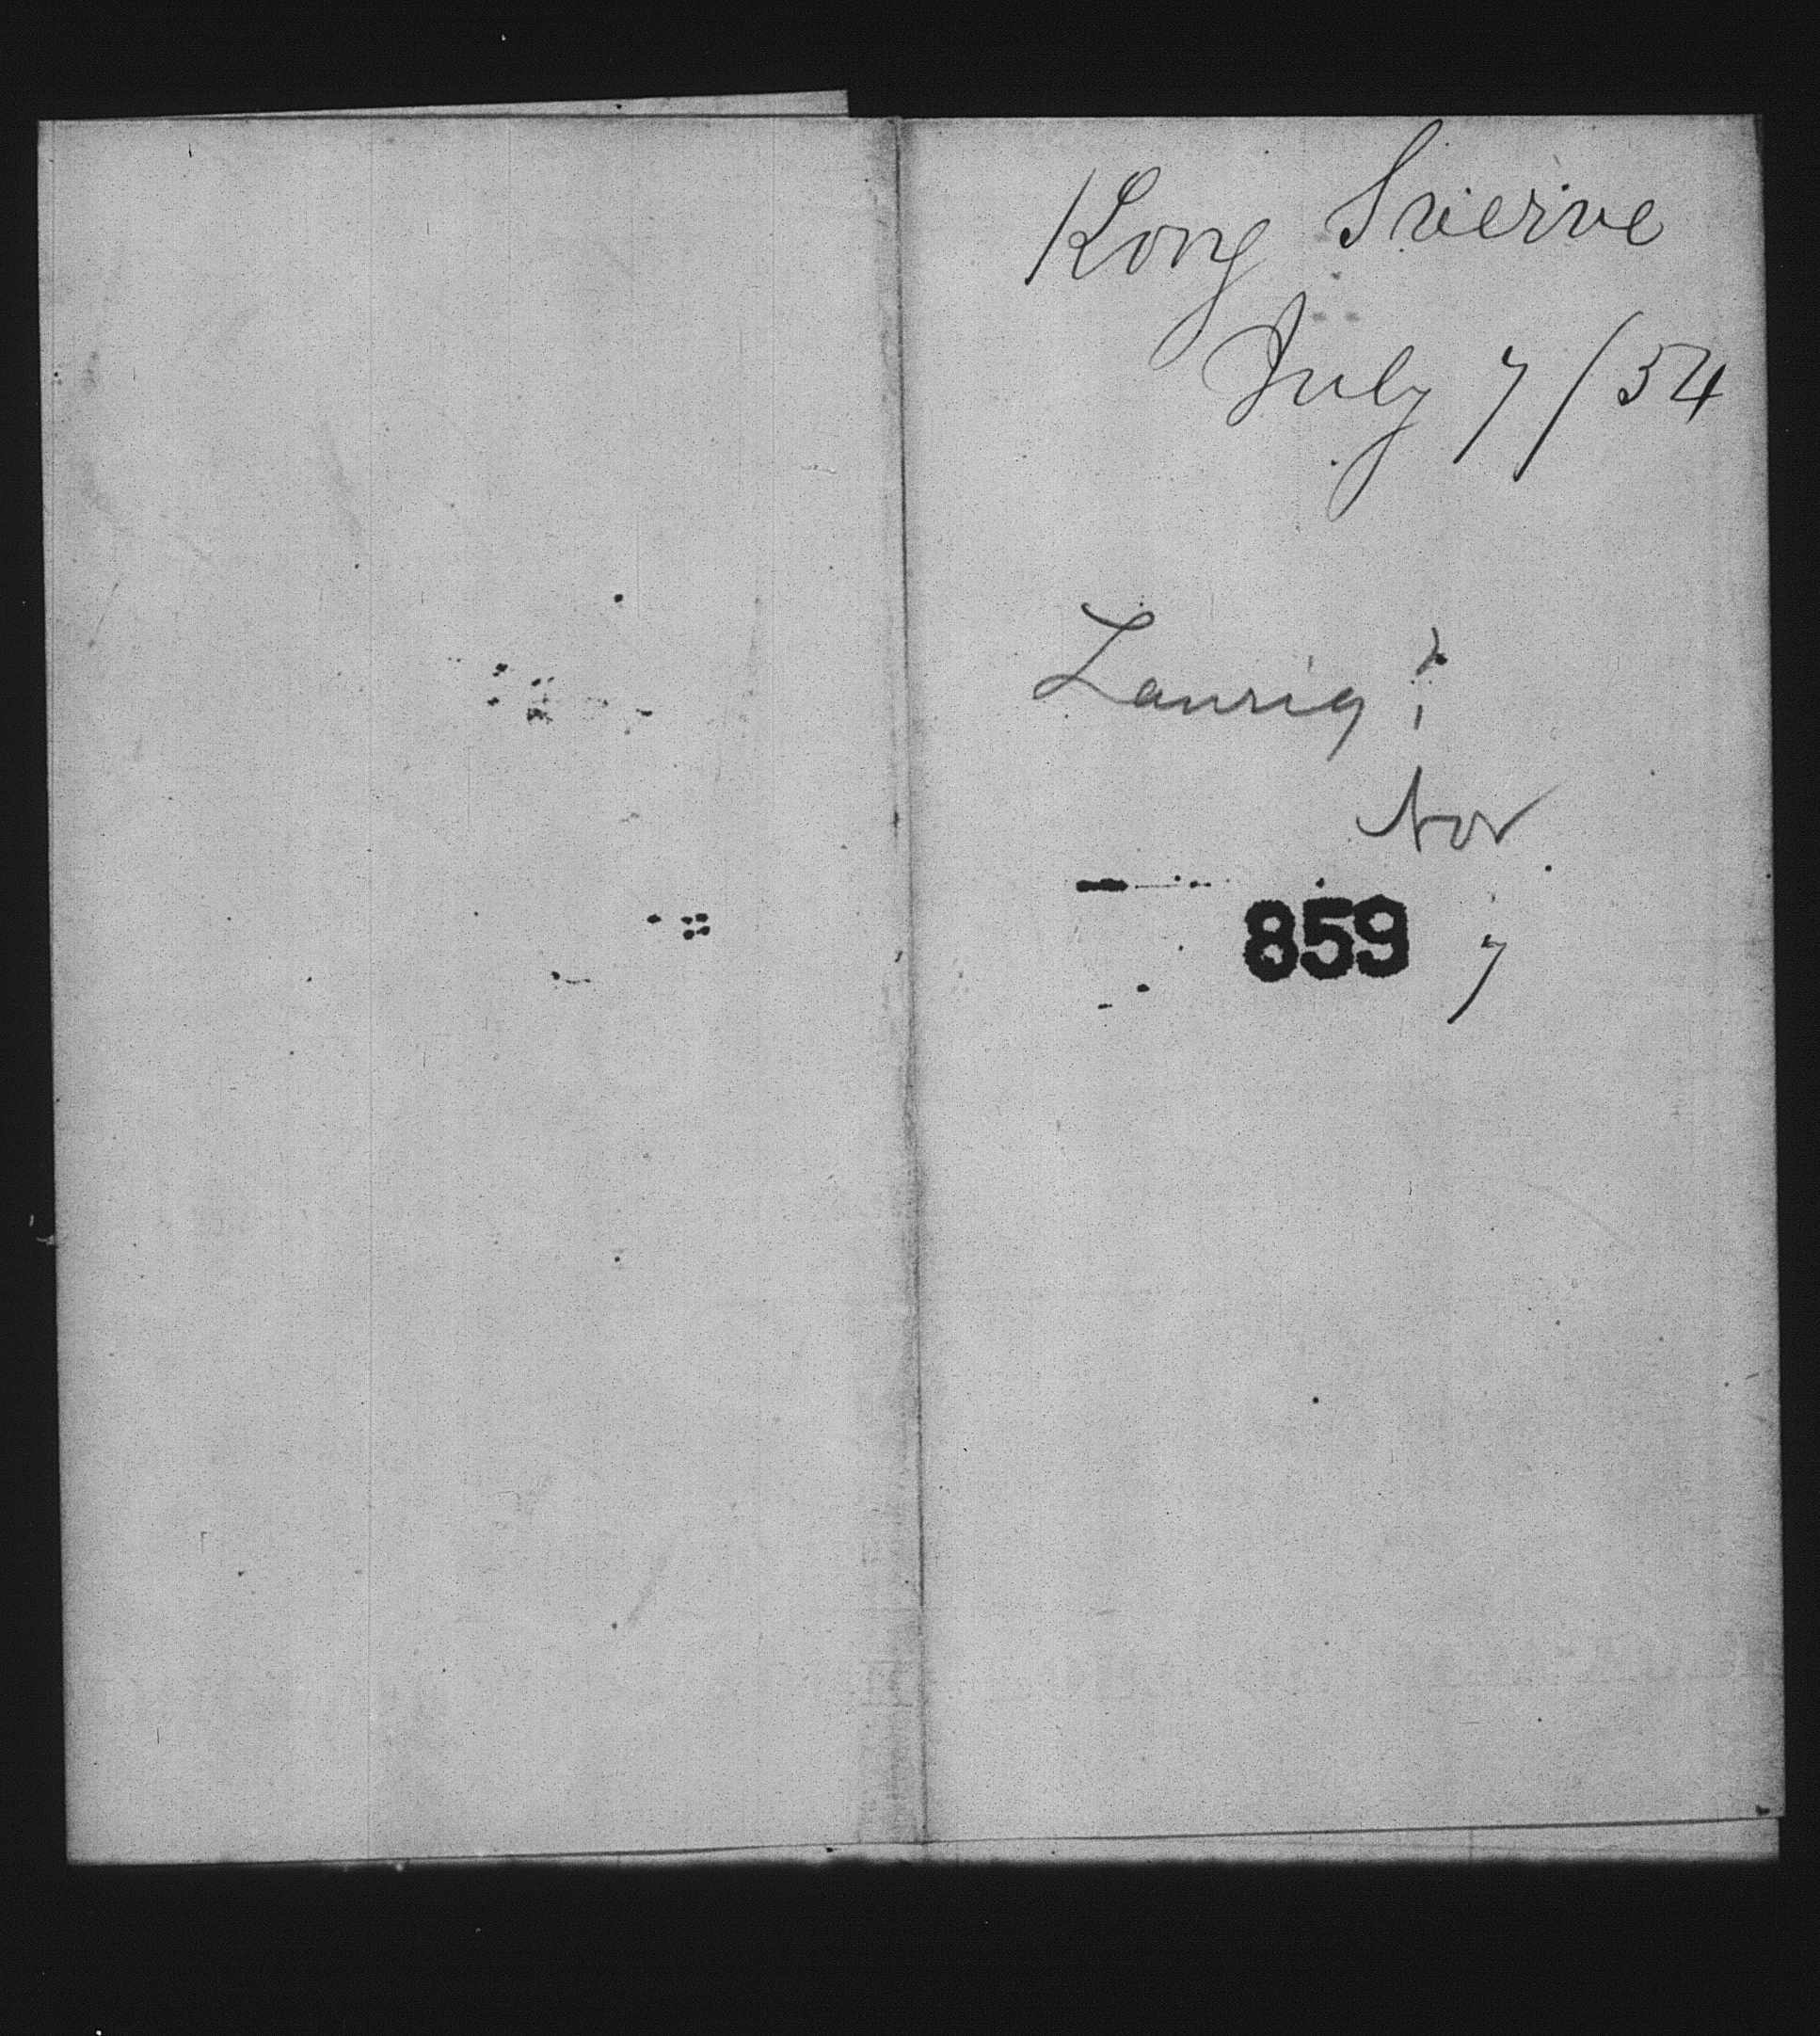 Kong Svierve
July 7/54
Laurig ?
Nor
859 7